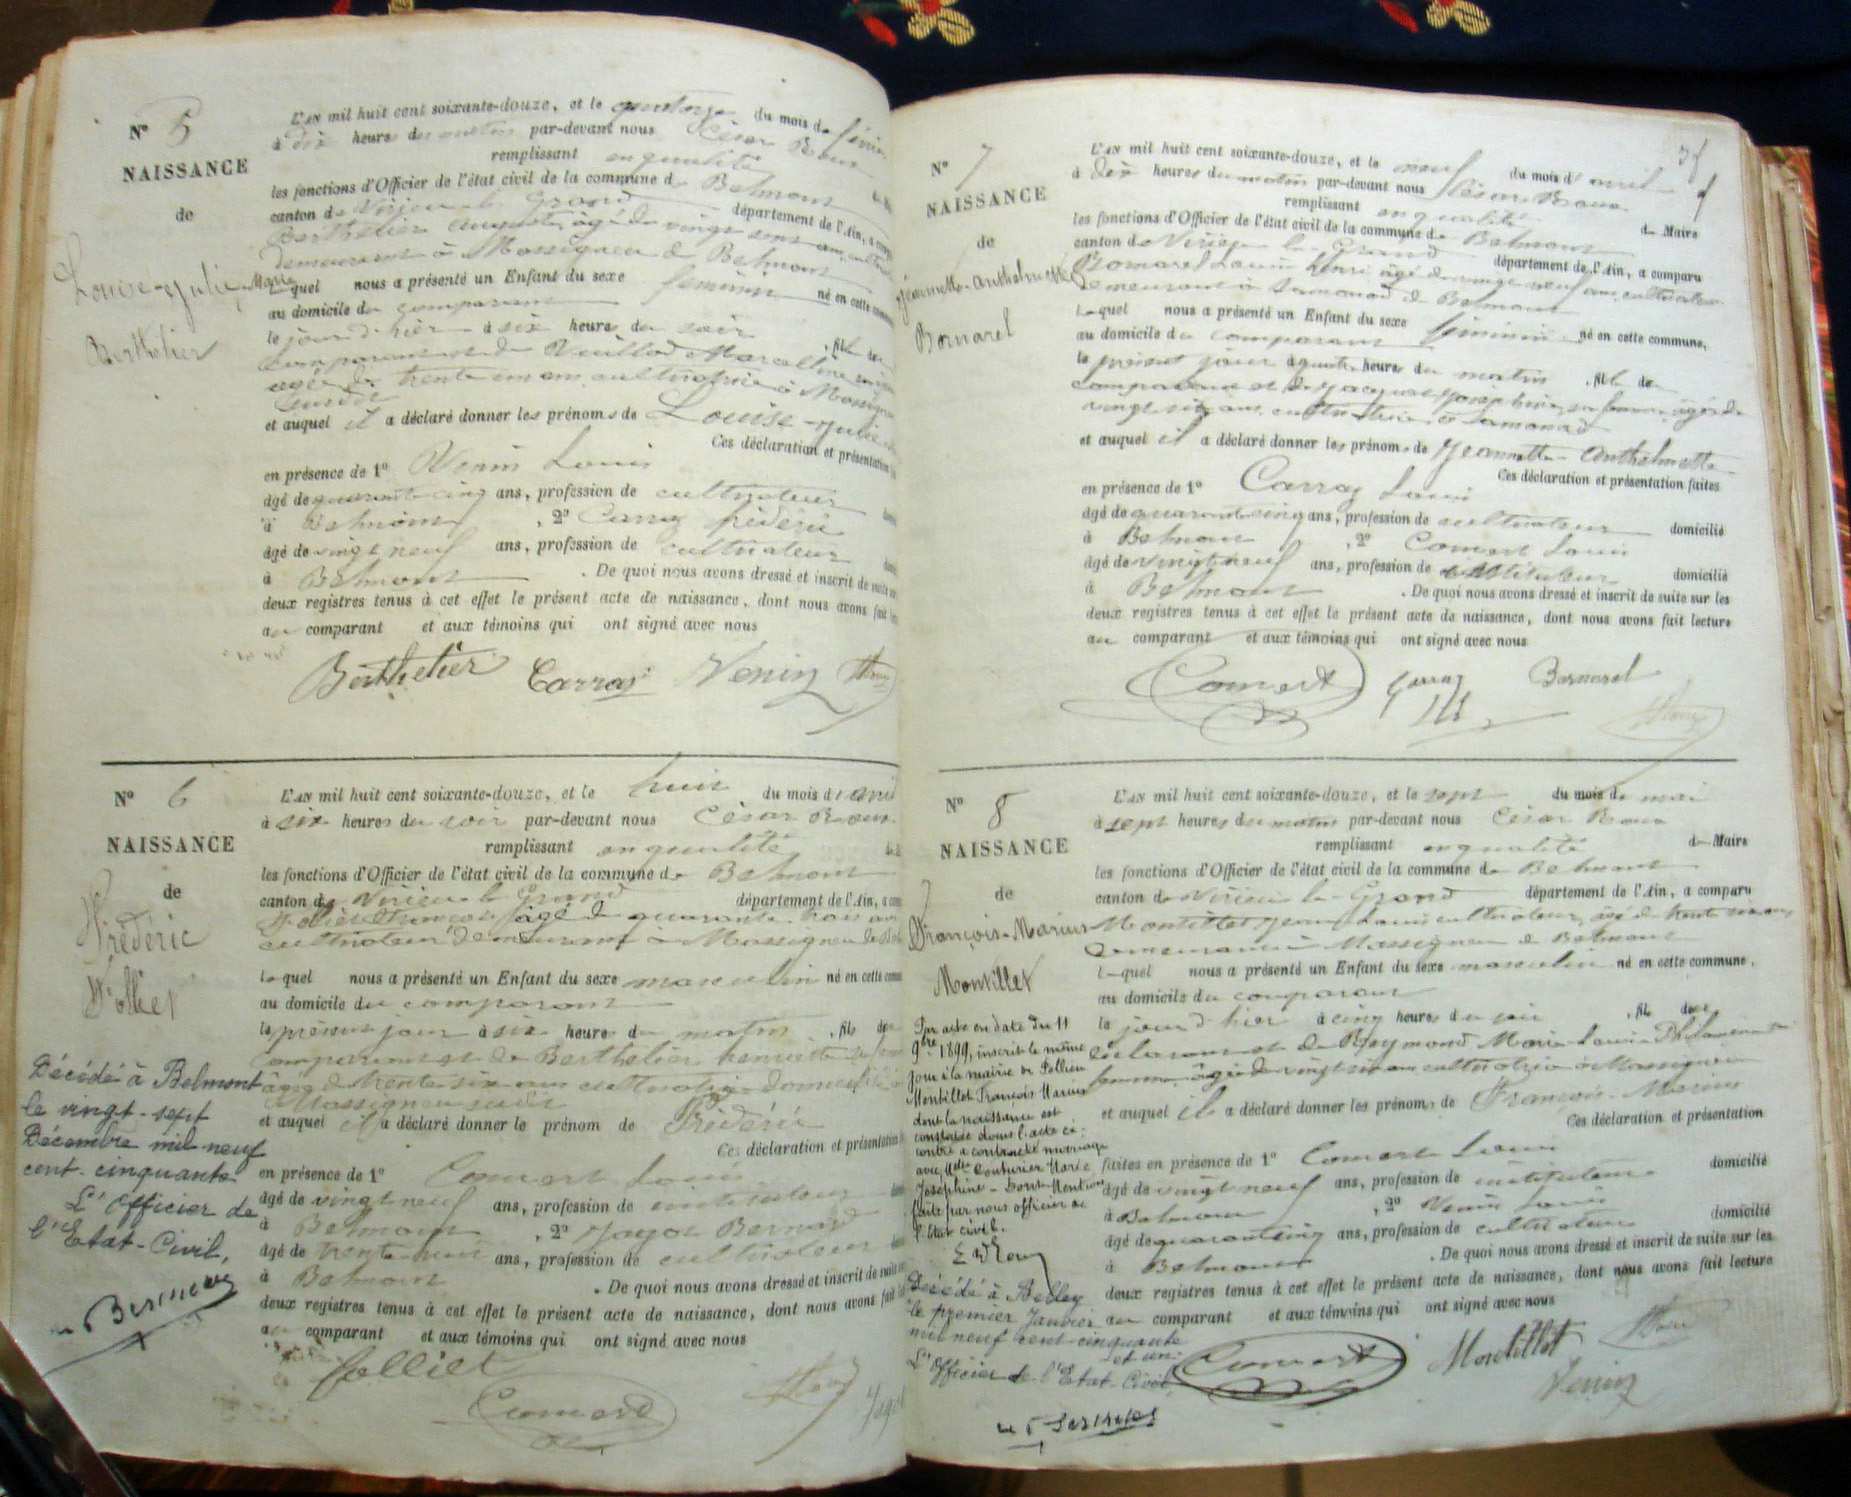 N° 5
NAISSANCE
de
Louise-Julie-Marie
Berthelier
L'AN mil huit cent soixante-douze, et le quatorze du mois de février
à dix heures du matin par-devant nous César Roux
remplissant en qualité
les fonctions d'Officier de l'état civil de la commune de Belmont
canton de Virieu le Grand département de l'Ain, a comparu
Berthelier Auguste, âgé de vingt ans,
demeurant à Massignieu de Belmont
lequel nous a présenté un Enfant du sexe féminin né en cette commune
au domicile du comparant
le jour d'hier à six heures du soir, fille du
comparant et de Vuillod Marceline sa
âgée de trente un ans cultivatrice à Massignieu
susdit
et auquel il a déclaré donner les prénoms de Louise-Julie
Ces déclaration et présentation
en présence de 1° Venin Louis
âgé de quarante cinq ans, profession de cultivateur
à Belmont, 2° Carraz frédéric
âgé de vingt neuf ans, profession de cultivateur
à Belmont. De quoi nous avons dressé et inscrit de suite sur
deux registres tenus à cet effet le présent acte de naissance, dont nous avons fait
au comparant et aux témoins qui ont signé avec nous
Berthelier Carraz Venin Roux
N° 6
NAISSANCE
de
Frédéric
Folliet
Décédé à Belmont
le vingt-sept
Décembre mil neuf
cent-cinquante
L'Officier de
l'Etat-Civil,
L'AN mil huit cent soixante-douze, et le huit du mois d'avril
à six heures du soir par-devant nous César Roux
remplissant en qualité
les fonctions d'Officier de l'état civil de la commune de Belmont
canton de Virieu le Grand département de l'Ain, a comparu
Folliet François âgé de quarante trois ans
cultivateur demeurant à Massignieu de
lequel nous a présenté un Enfant du sexe masculin né en cette commune
au domicile du comparant
le présent jour à six heures du matin, fils du
comparant et de Berthelier henriette sa femme
âgée de trente six ans cultivatrice domiciliée à
Massignieu susdit
et auquel il a déclaré donner le prénom de Frédéric
Ces déclaration et présentation
en présence de 1° Comert Louis
âgé de vingt neuf ans, profession de instituteur
à Belmont, 2° Bernard
âgé de trente ans, profession de cultivateur
à Belmont. De quoi nous avons dressé et inscrit de suite
deux registres tenus à cet effet le présent acte de naissance, dont nous avons fait
au comparant et aux témoins qui ont signé avec nous
folliet
Comert Roux
N° 7
NAISSANCE
de
Jeannette-Anthelmette
Bornarel
L'AN mil huit cent soixante-douze, et le neuf du mois d'avril
à dix heures du matin par-devant nous César Roux
remplissant en qualité de Maire
les fonctions d'Officier de l'état civil de la commune de Belmont
canton de Virieu le Grand département de l'Ain, a comparu
Bornarel Louis henri âgé de vingt neuf ans cultivateur
demeurant à Samonod de Belmont
lequel nous a présenté un Enfant du sexe féminin né en cette commune,
au domicile du comparant
le présent jour à quatre heures du matin, fille du
comparant et de Jacquet Joséphine sa femme âgée de
vingt six ans, cultivatrice à Samonod
et auquel il a déclaré donner les prénoms de Jeannette-Anthelmette
Ces déclaration et présentation faites
en présence de 1° Carraz Louis
âgé de quarante cinq ans, profession de cultivateur domicilié
à Belmont, 2° Comert Louis
âgé de vingt neuf ans, profession de instituteur domicilié
à Belmont. De quoi nous avons dressé et inscrit de suite sur les
deux registres tenus à cet effet le présent acte de naissance, dont nous avons fait lecture
au comparant et aux témoins qui ont signé avec nous
Comert Carraz Bornarel
Roux
N° 8
NAISSANCE
de
François-Marius
Montillet
Par acte en date du 11
9bre 1899, inscrit le même
jour à la mairie de Pollieu
Montillet François Marius
dont la naissance est
constatée dans l'acte ci-
contre a contracté mariage
avec Mlle Couturier Marie
Joséphine - Dont Mention
faite par nous officier de
l'état civil.
Décédé à Belley
le premier Janvier
mil neuf cent-cinquante
et un.
L'Officier de l'Etat-Civil,
L'AN mil huit cent soixante-douze, et le sept du mois de mai
à sept heures du matin par-devant nous César Roux
remplissant en qualité de Maire
les fonctions d'Officier de l'état civil de la commune de Belmont
canton de Virieu le Grand département de l'Ain, a comparu
Montillet Jean Louis cultivateur, âgé de trente six ans
demeurant à Massignieu de Belmont
lequel nous a présenté un Enfant du sexe masculin né en cette commune,
au domicile du comparant
le jour d'hier à cinq heures du soir, fils de
déclarant et de Reymond Marie Louise Philomène sa
femme âgée de vingt six ans cultivatrice à Massignieu
et auquel il a déclaré donner les prénoms de François-Marius
Ces déclaration et présentation
faites en présence de 1° Comert Louis
âgé de vingt neuf ans, profession de instituteur domicilié
à Belmont, 2° Venin Louis
âgé de quarante cinq ans, profession de cultivateur domicilié
à Belmont. De quoi nous avons dressé et inscrit de suite sur les
deux registres tenus à cet effet le présent acte de naissance, dont nous avons fait lecture
au comparant et aux témoins qui ont signé avec nous
Comert Montillet Roux
Venin